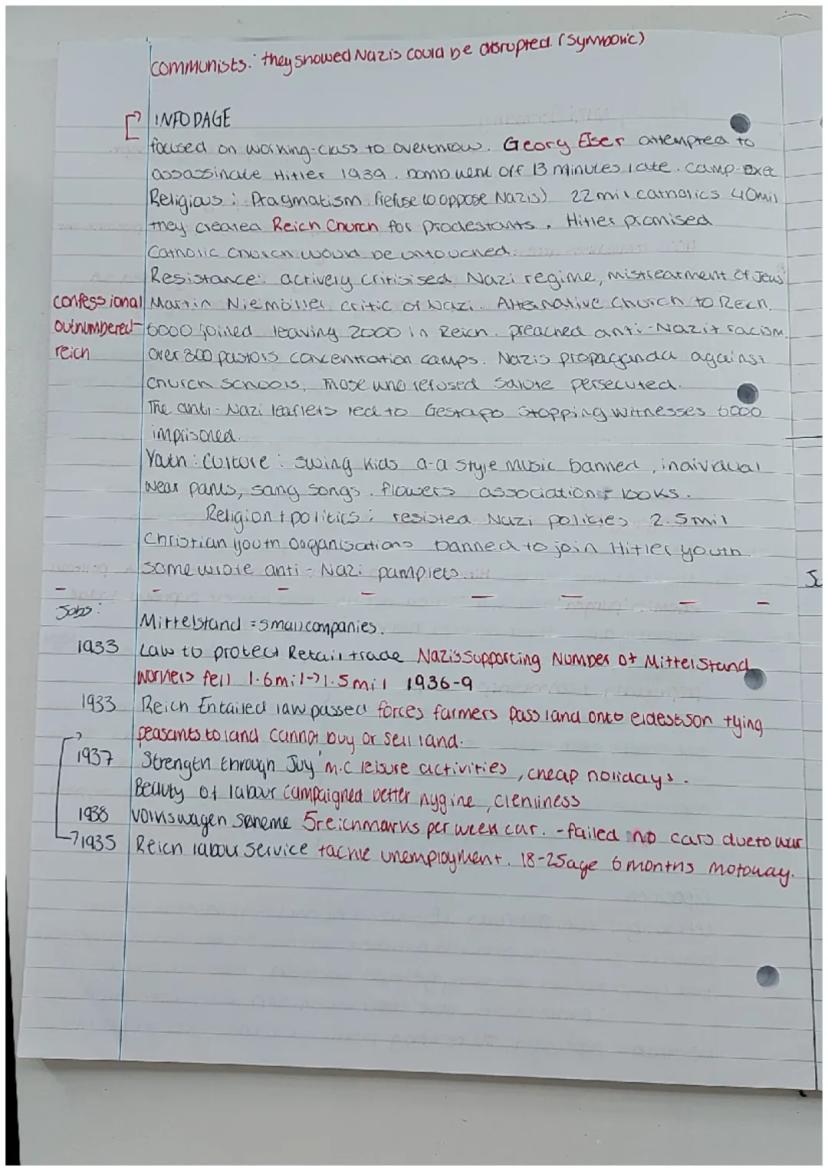 communists: they showed Nazis could be disrupted. (symbolic)
INFO PAGE
focused on working-class to overthrow. Georg Elser attempted to
assassinate Hitler 1939. bomb went off 13 minutes late. camp exec
Religious: Pragmatism (refuse to oppose Nazis) 22 mil catholics 40mil
they created Reich Church for prodestants. Hitler promised
Catholic Church would be untouched.
Resistance: actively critisised Nazi regime, mistreatment of Jews
confessional Martin Niemöller critic of Nazi. Alternative Church to Reich.
outnumbered- 6000 joined leaving 2000 in Reich. preached anti-Nazi + racism.
reich over 800 pastors concentration camps. Nazis propaganda against
church schools, Those who refused salute persecuted.
The anti-Nazi leaflets led to Gestapo stopping witnesses 6000
imprisoned.
Youth: Culture: swing kids a-a style music banned, individual
wear pants, sang songs. flowers association + looks.
Religion + politics: resisted Nazi policies 2.5mil
Christian youth organisations banned to join Hitler youth
some wrote anti-Nazi pamplets.
Jobs: Mittelstand = small companies.
1933 Law to protect Retail trade Nazis supporting Number of Mittelstand
workers fell 1.6mil→1.5mil 1936-9
1933 Reich Entailed law passed forces farmers pass land onto eldest son tying
peasants to land cannot buy or sell land.
1937 'Strength through Joy' m.c leisure activities, cheap holidays.
Beauty of labour campaigned better hygine, clenliness
1938 Volkswagen scheme 5 reichmarks per week car. - failed no cars due to war
→1935 Reich labour service tackle unemployment. 18-25 age 6 months motorway.